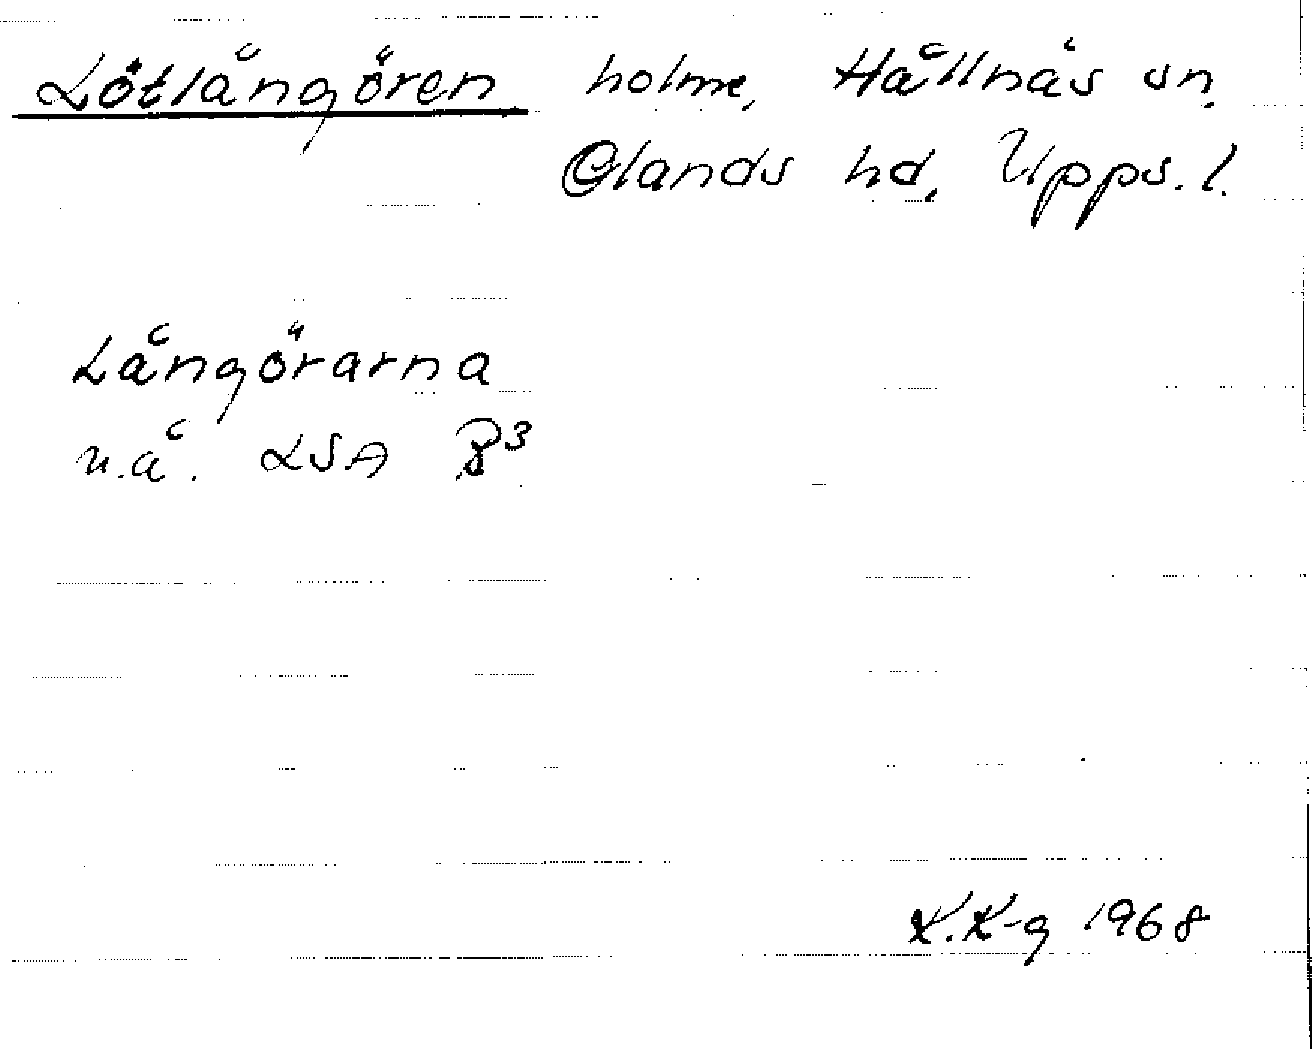 Lötlångören holme, Hållnäs sn,
Olands hd, Upps. l.
Långörarna
u.å. LSA B³
K.K-g 1968